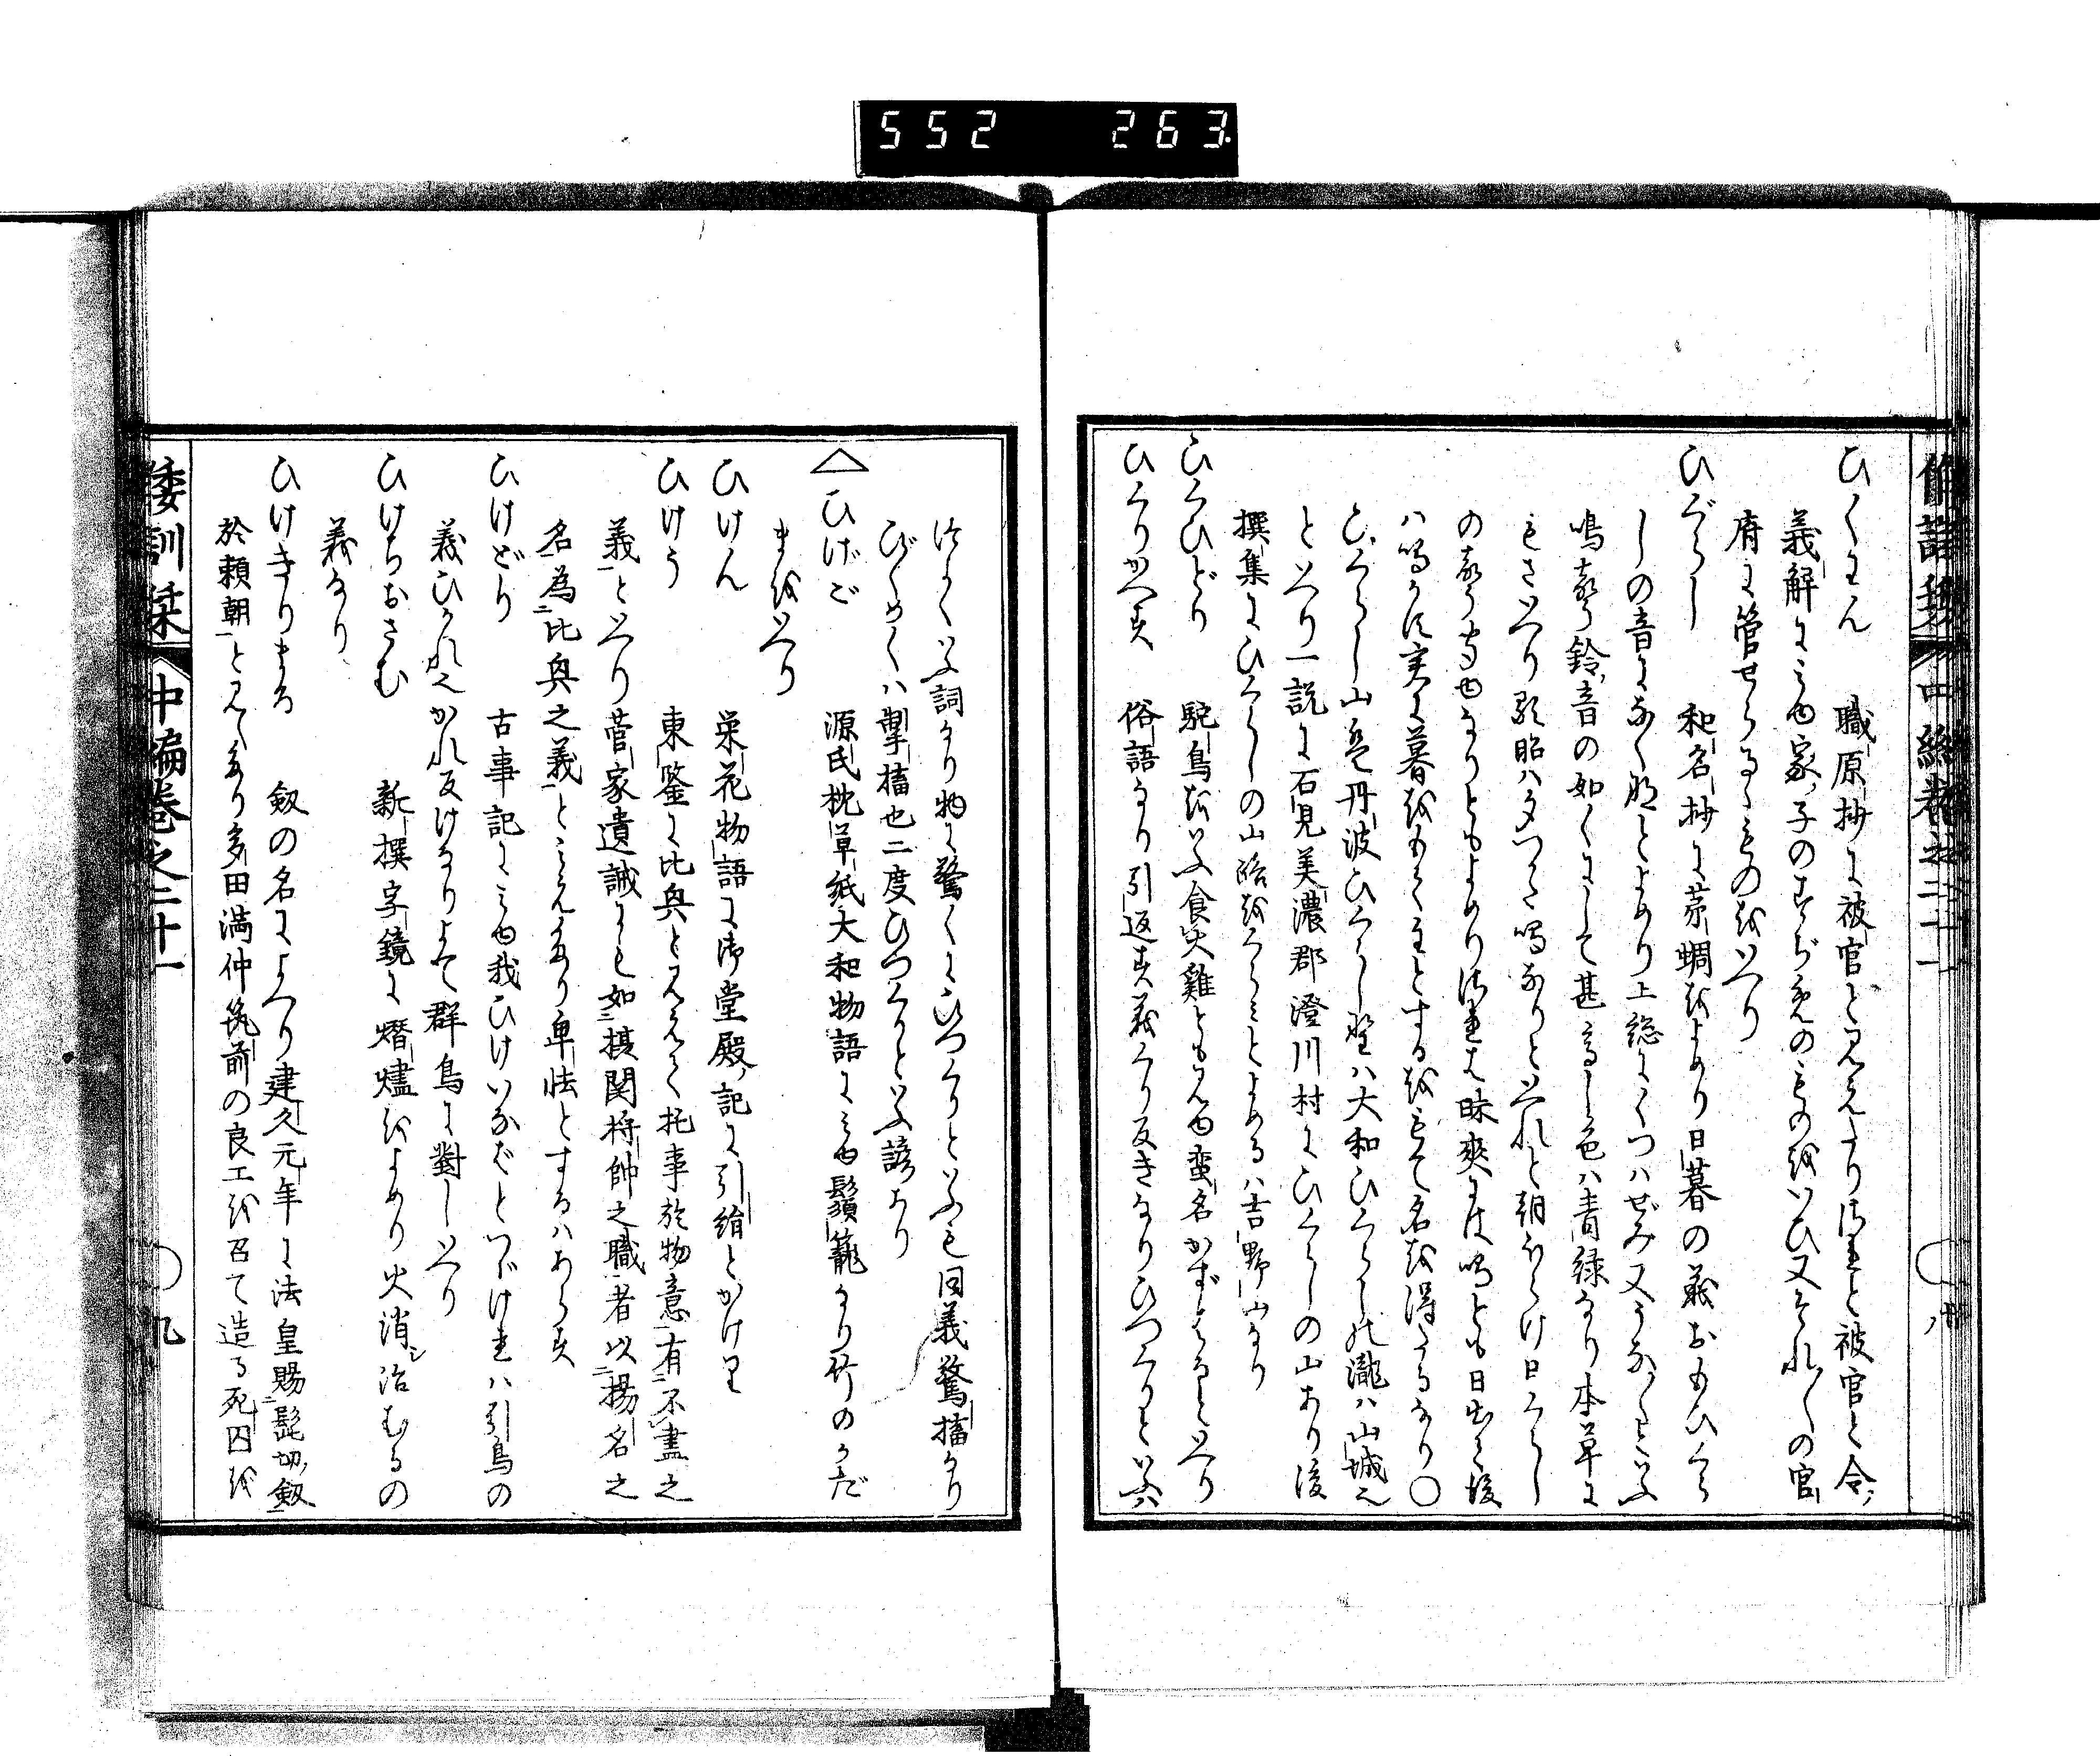 552 263
ひくわん 職原抄に被官と見えたり清玉と被官と令ノ
義解にみゆ家ノ子のすぢめのものをいひ又それ〳〵の官
府に管せらるゝものをいへり
ひぐらし 和名抄に茅蜩をよめり日暮の義おもひくら
しの音になく也とよめり上総にくつはぜみ又うなくといふ
鳴声鈴ノ音の如くにして甚高し色ハ青緑なり本草に
もさいへり顕昭ハ夕つかた鳴なりといへれと朝ほらけ日くらし
の声す也なりともよめり清玉も昧爽には鳴とも日出て後
ハ鳴かす実に暮をもて主とする故もて名を得たるなり○
ひくらし山是丹波ひくらし野ハ大和ひくらしの瀧ハ山城也
といへり一説に石見美濃郡澄川村にひくらしの山あり後
撰集にひくらしの山路をくらみとよめるハ吉野山なり
ひくひどり 駝鳥をいふ食火雞とも見ゆ蛮名かずはるといへり
ひくりかへす 俗語なり引返す義くり反きなりひつくりといふハ
つよくいふ詞なり物に驚くにひつくりといふも同義驚搐なり
びくめくハ掣搐也二度ひつくりといふ諺あり
△ひげご 源氏枕草紙大和物語にみゆ鬚籠なり竹のうだ
まをいへり
ひけん 栄花物語に御堂殿ノ記に引絹とかけり
ひけう 東鑒に比興と見えて托事於物意有不盡之
義といへり菅家遺誡にも如摂関将帥之職者以揚名之
名為比興之義とみえたり卑怯とするハあらす
ひけどり 古事記にみゆ我ひけいなばとつゞけまハ引鳥の
義ひかれ也かれ反けなりよて群鳥に對しいへり
ひけちおさむ 新撰字鏡に熸燼をよめり火消シ治むるの
義なり
ひけきりまる 釼の名によへり建久元年に法皇賜髭切ノ釼
於頼朝と見えたり多田満仲筑前の良工を召て造る死囚を
倭訓栞 中編巻之二十一 九